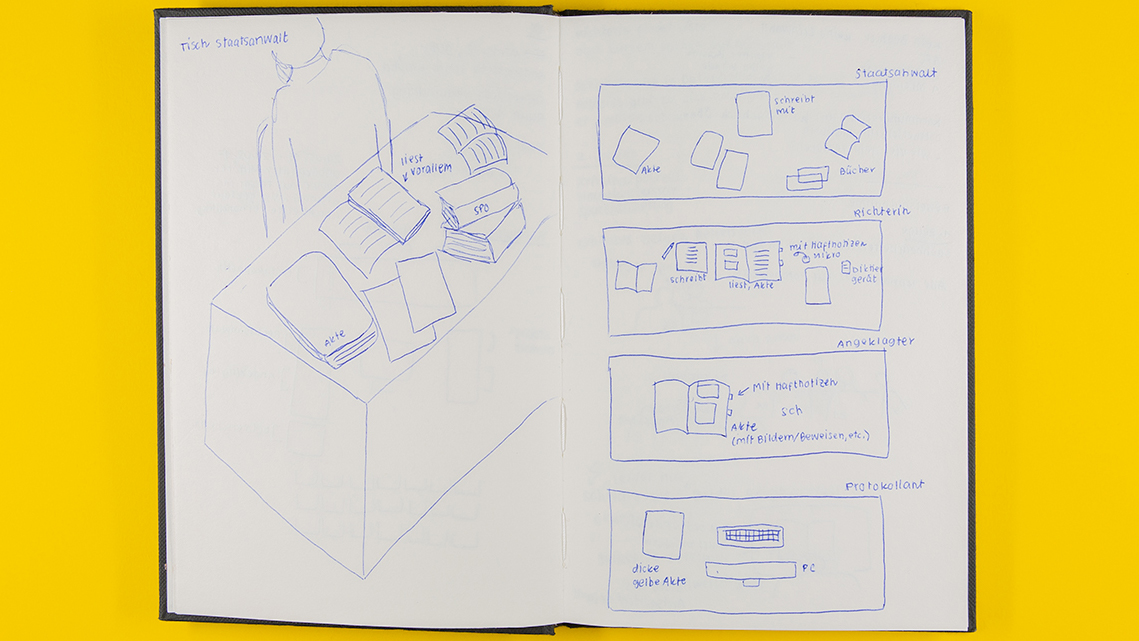 Tisch Staatsanwalt
liest
vorallem
SPO
Akte
Staatsanwalt
schreibt
mit
Akte
Bücher
Richterin
mit Haftnotizen
Mikro
schreibt
liest, Akte
Diktier
gerät
Angeklagter
mit Haftnotizen
sch
Akte
(mit Bildern/Beweisen, etc.)
Protokollant
dicke
gelbe Akte
PC